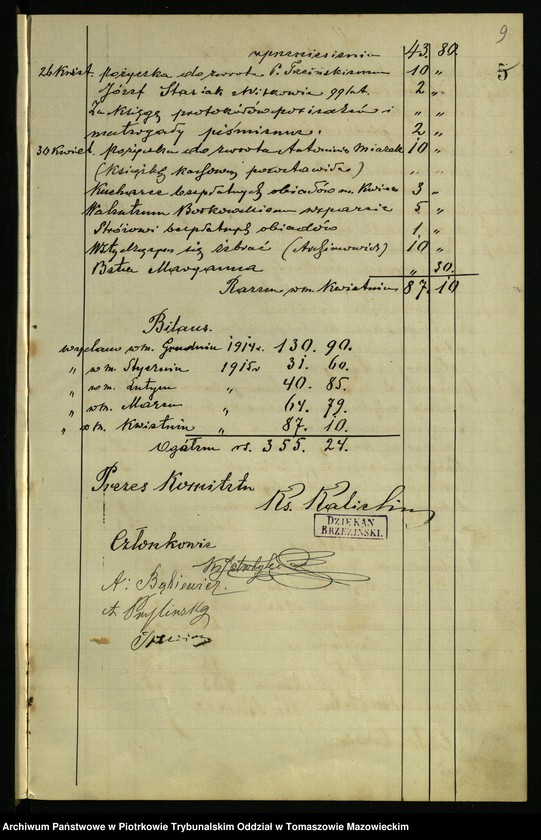 9
5
z przeniesienia 43. 80.
26 Kwiet. pożyczka do zwrotu P. Trzcińskiemu 10 „
Józef Stasiak 2 „
Za Księgę protokółów posiedzeń i „ „
materyały piśmienne. 2 „
30 Kwiet. pożyczka do zwrotu Antoniemu 10 „
(Książkę kasową pozostawił) „ „
Kucharce bezpłatnych obiadów m. Kwiec 3 „
Borkowskiemu wsparcie 5 „
Stróżowi bezpłatnych obiadów 1. „
Wstydzącym się żebrać 10 „
Maryanna „ 30.
Razem w m. Kwietniu 87. 10
Bilans.
wydano w m. Grudniu 1914 r. 130. 90.
„ w m. Styczniu 1915 r 31. 60.
„ w m. Lutym „ 40. 85.
„ w m. Marcu „ 64. 79.
„ w m. Kwietniu „ 87. 10.
Ogółem rs. 355. 24.
Prezes Komitetu
Ks. Kalichin
DZIEKAN
BRZEZIŃSKI.
Członkowie
A. Bąkiewicz.
Archiwum Państwowe w Piotrkowie Trybunalskim Oddział w Tomaszowie Mazowieckim